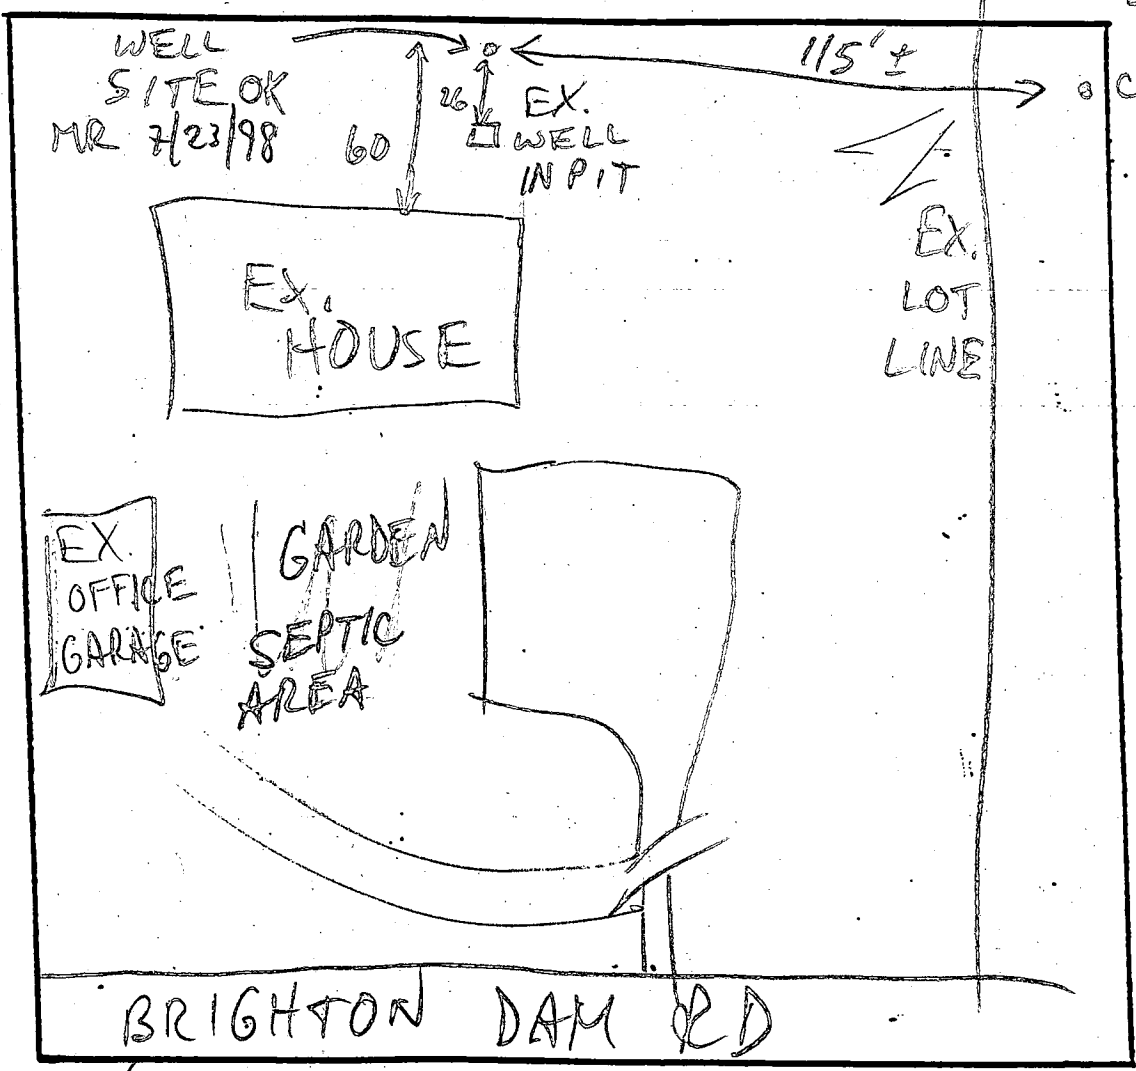 WELL
SITE OK
MR 7/23/98
60
26
EX.
WELL
IN PIT
115' ±
C
EX.
LOT
LINE
EX.
HOUSE
EX.
OFFICE
GARAGE
GARDEN
SEPTIC
AREA
BRIGHTON DAM RD